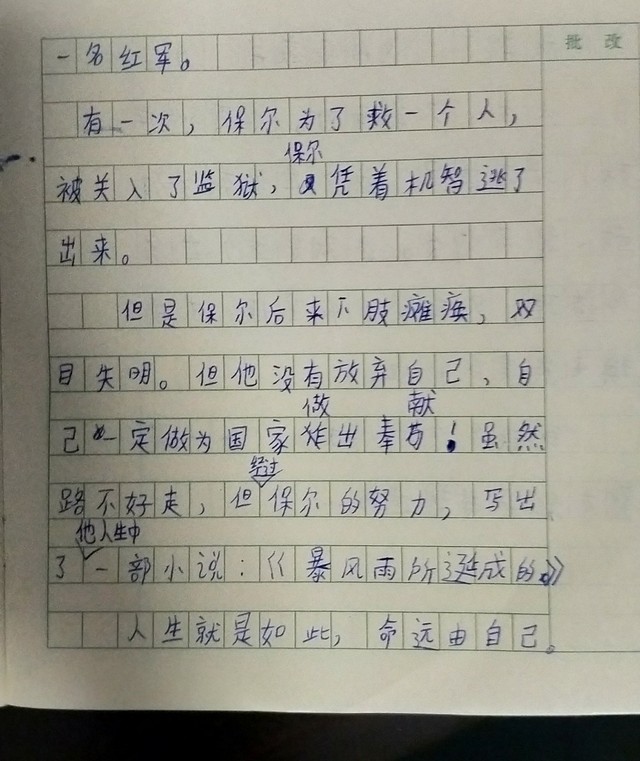 批 改
一名红军。
有一次，保尔为了救一个人，
保尔
被关入了监狱，凭着机智逃了
出来。
但是保尔后来下肢瘫痪，双
目失明。但他没有放弃自己，自
做 献
己一定做为国家作出奉苈！虽然
经过
路不好走，但保尔的努力，写出
他人生中
了一部小说：《暴风雨所诞成的》
人生就是如此，命远由自己。